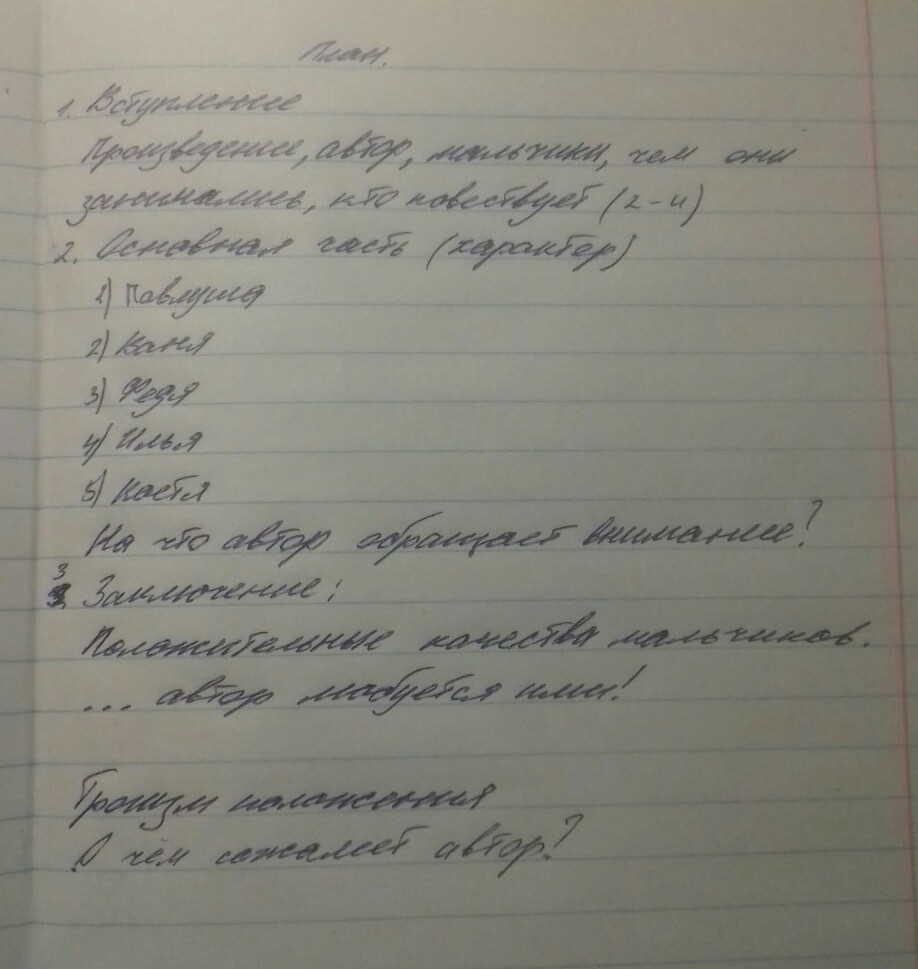 План.
1. Вступление
Произведение, автор, мальчики, чем они
занимались, кто повествует (2-4)
2. Основная часть (характер)
1) Павлуша
2) Ваня
3) Федя
4) Илья
5) Костя
На что автор обращает внимание?
3 Заключение:
Положительные качества мальчиков.
... автор любуется ими!
Трагизм положения
О чём сожалеет автор?